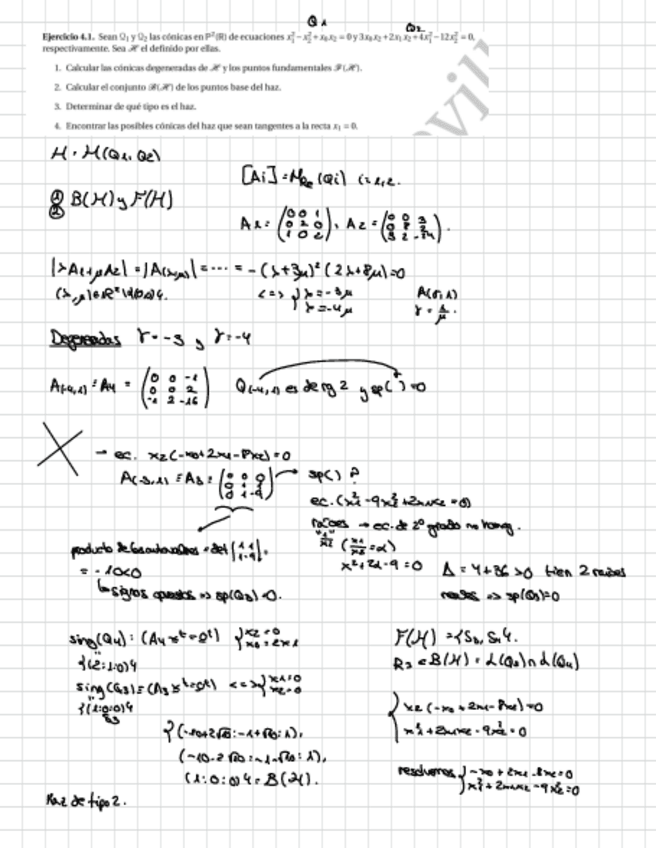 Q1
Q2
Ejercicio 4.1. Sean Q₁ y Q₂ las cónicas en P²(R) de ecuaciones x₁² − x₂² + x₀x₂ = 0 y 3x₀x₂ + 2x₁x₂ + 4x₁² − 12x₂² = 0,
respectivamente. Sea ℋ el definido por ellas.
1. Calcular las cónicas degeneradas de ℋ y los puntos fundamentales ℱ(ℋ).
2. Calcular el conjunto ℬ(ℋ) de los puntos base del haz.
3. Determinar de qué tipo es el haz.
4. Encontrar las posibles cónicas del haz que sean tangentes a la recta x₁ = 0.
H = H(Q1, Q2)
[Ai] = M (Qi) i=1,2.
① ② B(H) y F(H)
A1 = (0 0 1
0 2 0
1 0 2), A2 = (0 0 3
0 8 2
3 2 -24).
|λA1+μA2| = |A(λ,μ)| = ··· = -(λ+3μ)²(2λ+8μ)=0
<=> { λ=-3μ
λ=-4μ
γ = λ/μ.
Degeneradas γ=-3 y γ=-4
A(-4,1) ≡ A4 = (0 0 -1
0 0 2
-1 2 -16) Q(-4,1) es de rg 2 y sp( )=0
→ ec. x2(-x0+2x1-8x2)=0
A(-3,1) ≡ A3 = (0 0 0
0 1 1
0 1 -9) → sp() ?
ec. (x1²-9x2²+2x1x2=0)
raíces → ec. de 2º grado no homog.
producto de los autovalores = det |1 1
1 -9| =
(x1/x2=α)
x²+2x-9=0 Δ = 4+36>0 tien 2 raíces
= -10<0
reales => sp(Q3)=0
↳ signos opuestos => sp(Q3)=0.
sing(Q4): (A4 x^t=0^t) { x2=0
x0=2x1
{(2:1:0)}
F(H) = {S3, S4}.
sing(Q3)=(A3 x^t=0^t) <=> { x1=0
x2=0
{(1:0:0)}
{ x2(-x0+2x1-8x2)=0
x1²+2x1x2-9x2²=0
{(-10+2√10:-1+√10:1),
(-10-2√10:-1-√10:1),
(1:0:0)} = B(H).
resolvemos { -x0+2x1-8x2=0
x1²+2x1x2-9x2²=0
Haz de tipo 2.